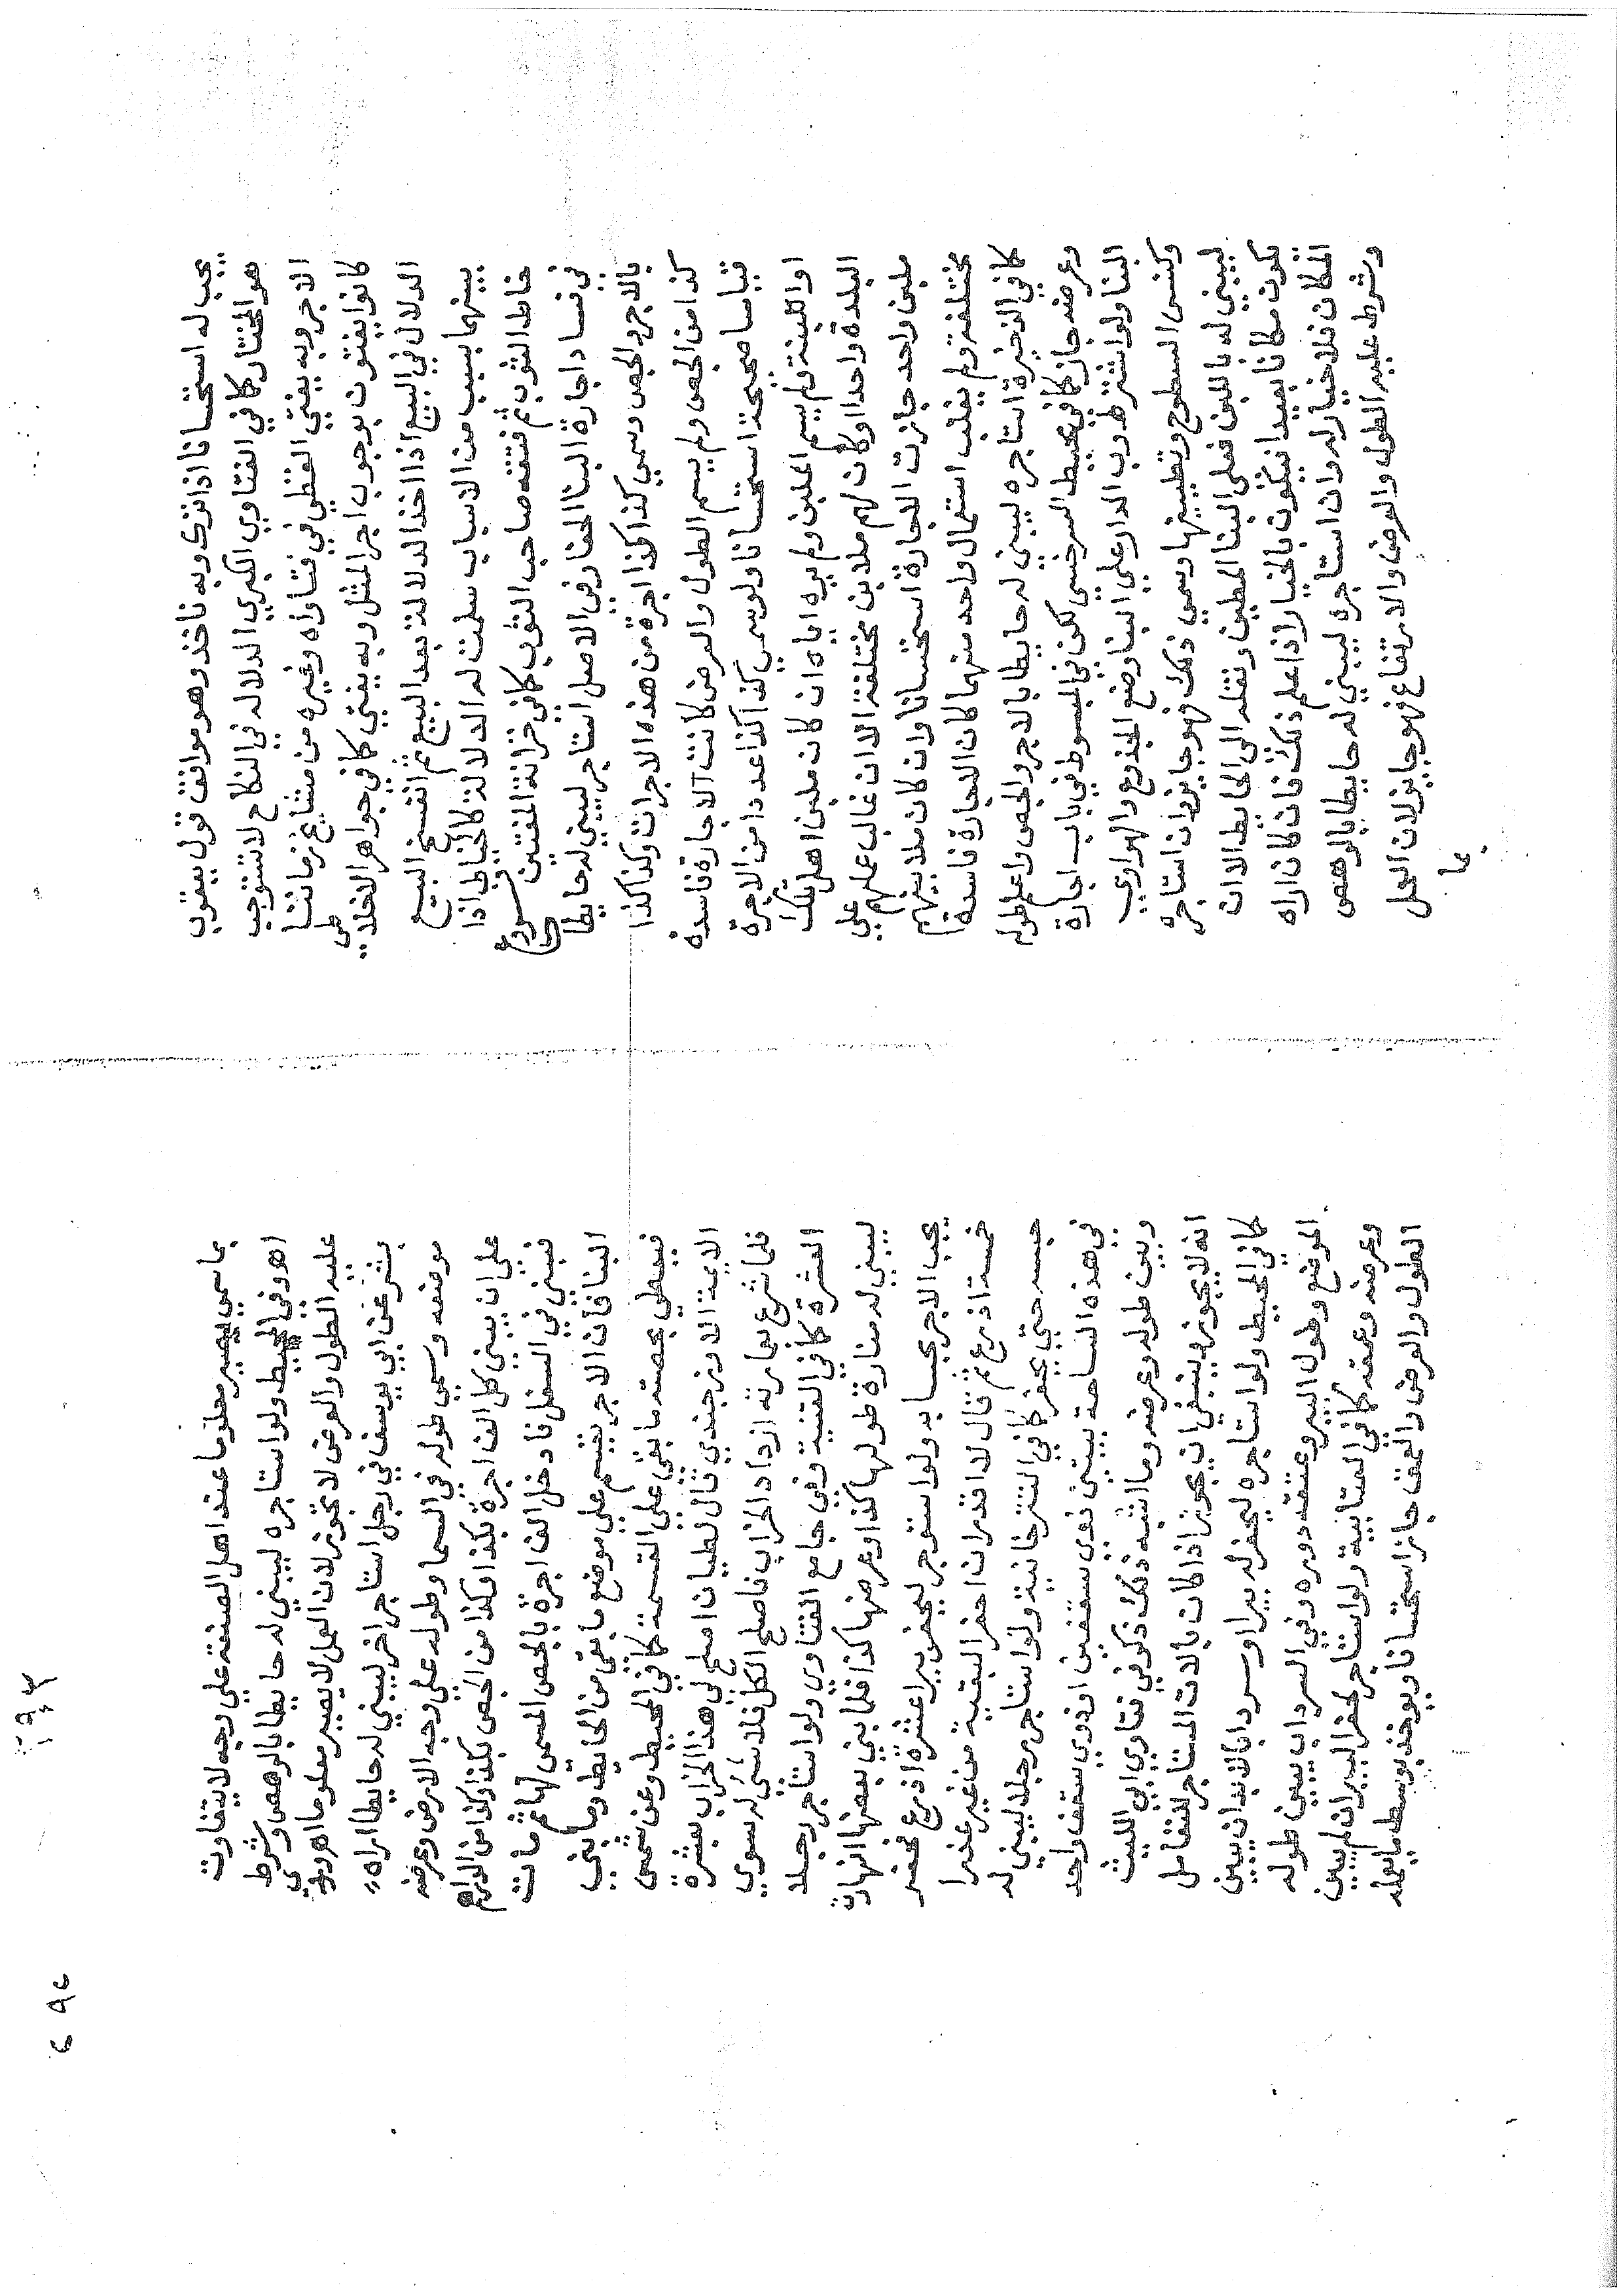 يجب له استحسانا اذا ترك وبه ناخذ وهو موافق قول يعقوب
هو المختار كما في الفتاوي الكبري الدلاله في النكاح لا تستوجب
الاجر وبه يفتي الفضلي في فتاواه وغيره من مشايخ زماننا
كانوا يفتون بوجوب اجر المثل وبه يفتي كما في جواهر الاخلاطي
الدلال في البيع اذا اخذ الدلالة بعد البيع ثم انفسخ البيع
بينهما بسبب من الاسباب سلمت له الدلالة كالخياط اذا
خاط الثوب ثم فتقه صاحب الثوب كما في خزانة المفتين
في فساد اجارة البنا الحفار في الاصل استاجر ليبني له حايطا
بالاجر والجص وسمي كذا كذا اجرة من هذه الاجرات وكذا كذا
كذا من الجص ولم يسم الطول والعرض كانت الاجارة فاسدة
قياسا صحيحة استحسانا ولو سمي كذا كذا عددا من الاجرة
او اللبنة ولم يسم الملبن ولم يره اياه ان كان ملبن اهل تلك
البلدة واحدا او كان لهم ملابن مختلفة الا ان غالب عملهم علي
ملبن واحد جازت الاجارة استحسانا وان كان ملابينهم
مختلفة ولم يغلب استعمال واحد منهما كان الاجارة فاسدة
كما في الذخيرة استاجره ليبني له حايطا بالاجر والجص واعلم طوله
وعرضه جاز كما في محيط السرخسي لكن في المبسوط في باب اجارة
البنا ولو اشترط رب الدار علي البنا وضع الجذوع والهوادي
وكنس السطوح وتطيينها وسمي ذلك فهو جايز وان استاجره
ليبني له باللبن فعلي البنا الطين ونقله الي الحايط الا ان
يكون مكانا بعيدا فيكون بالخيار اذا علم ذلك فان كان اراه
المكان فلا خيار له وان استاجره ليبني له حايطا بالرهص
وشرط عليه الطول والعرض والارتفاع فهو جايز لان العمل
بما
بما سمي يصير معلوما عند اهل الصنعة علي وجه لا يتفاوت
اهـ وفي المحيط ولو استاجره ليبني له حايطا بالرهص وشرط
عليه الطول والعرض لا تجوز لان العمل لا يصير معلوما اهـ وروي
بشر عن ابي يوسف في رجل استاجر اخر ليبني له حايطا اراه
موضعه وسمي طوله في السما وطوله علي وجه الارض وعرضه
علي ان يبني كل الف اجرة بكذا وكذا من الجص بكذا وكذا من الدراهم
فبني في السفل فادخل الف اجرة بالجص المسمي لها ثم مات
البنا فان الاجر يقسم علي موضع ما بقي من الحايط وما بني
فيعطي بحصته ما بقي علي القسمة كما في المحيط وعن شمس
الايمة الاوزجندي قال لطيان اصلح لي هذا الخراب بعشرة
فلما شرع بعمارته ازداد الخراب فاصلح الكل فلا شي له سوي
العشرة كما في القنية وفي جامع الفتاوي ولو استاجر رجلا
ليبني له منارة طولها كذا وعرضها كذا فلما بني بعضها انهارت
يجب الاجر بحسابه ولو استوجر ليحفر بيرا عشرة اذرع فحفر
خمسة اذرع ثم قال لا اقدر ان احفر البقية من غير عذر
حبس حتي يحفر كما في التترخانية ولو استاجر رجلا ليبني له
في هذه الساحة بيتين ذوي سقفين او ذوي سقف واحد
وبين طوله وعرضه وما اشبه ذلك ذكر في فتاوي ابي الليث
انه لا يجوز وينبغي ان يجوز اذا كان بالات المستاجر للتعامل
كما في المحيط ولو استاجره ليحفر له بيرا او سردابا لابد ان يبين
الموضع وطول البير وعمقه ودوره وفي السرداب يبين طوله
وعرضه وعمقه كما في الغياثية ولو استاجر لحفر البير ان لم يبين
الطول والعرض والعمق جاز استحسانا ويوخذ بوسط ما يعمله